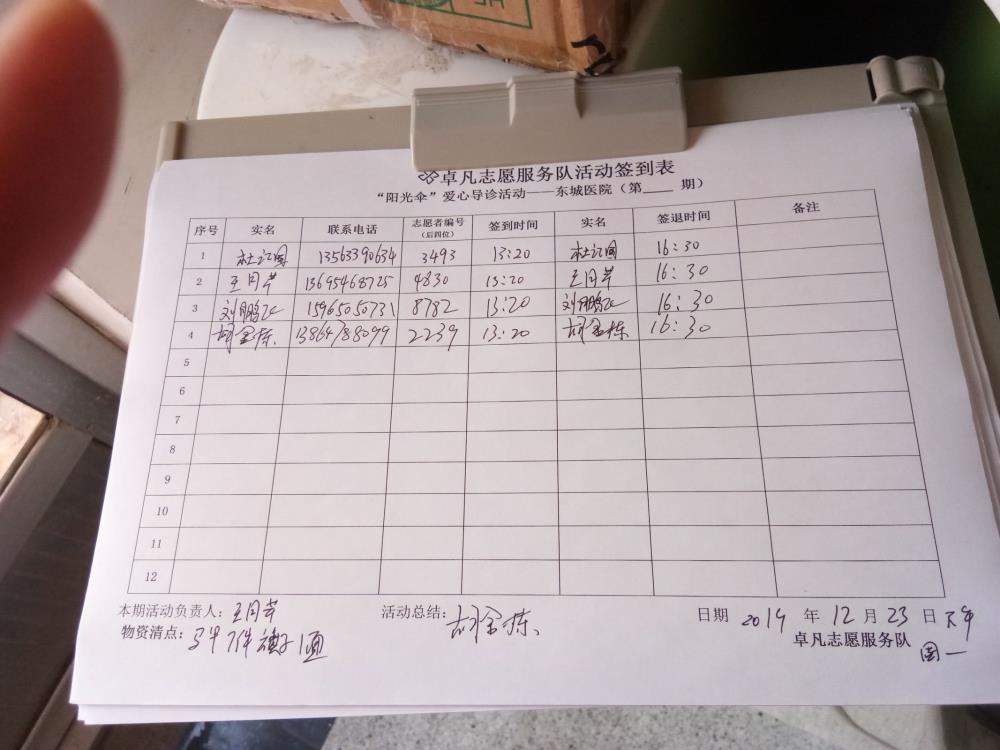 卓凡志愿服务队活动签到表
“阳光伞”爱心导诊活动——东城医院（第____期）
序号 实名 联系电话 志愿者编号（后四位） 签到时间 实名 签退时间 备注
1 杜江国 13563390634 3493 13:20 杜江国 16:30
2 王月芹 13695468725 4830 13:20 王月芹 16:30
3 刘鹏飞 15965050731 8782 13:20 刘鹏飞 16:30
4 胡金栋 13864788099 2239 13:20 胡金栋 16:30
5
6
7
8
9
10
11
12
本期活动负责人：王月芹 活动总结：胡金栋 日期 2019 年 12 月 23 日 下午
物资清点：马甲7件 1面 卓凡志愿服务队 周一